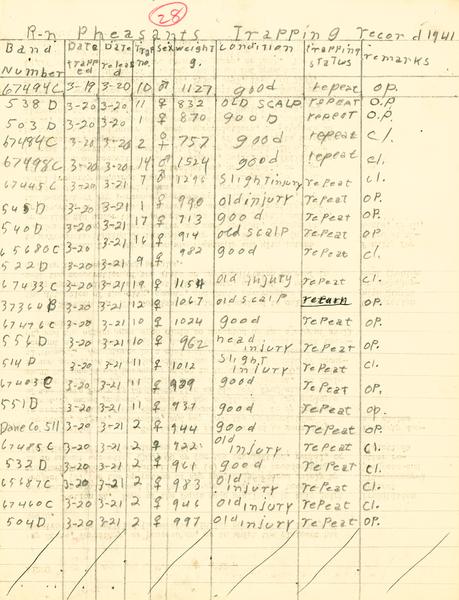 28
R-n Pheasants Trapping record 1941
Band Number Date trapped Date released Trap no. sex weight g. condition trapping status remarks
67494C 3-19 3-20 10 ♂ 1127 good repeat op.
538D 3-20 3-20 11 ♀ 832 OLD SCALP repeat O.P.
503D 3-20 3-20 1 ♀ 870 good repeat O.P.
67484C 3-20 3-20 2 ♀ 757 good repeat cl.
67498C 3-20 3-20 14 ♂ 1524 good repeat cl.
67445C 3-20 3-21 7 ♂ 1296 slight injury repeat cl.
545D 3-20 3-21 1 ♀ 990 old injury repeat op.
540D 3-20 3-21 17 ♀ 713 good repeat op.
65680C 3-20 3-21 16 ♀ 914 old scalp repeat op
522D 3-20 3-21 9 ♀ 982 good repeat cl.
67433C 3-20 3-21 19 ♀ 1154 old injury repeat cl.
37364B 3-20 3-21 12 ♀ 1067 old scalp return op.
67476C 3-20 3-21 10 ♀ 1024 good repeat op.
556D 3-20 3-21 10 ♀ 962 head injury repeat op.
514D 3-20 3-21 11 ♀ 1012 slight injury repeat cl.
67403C 3-20 3-21 11 ♀ 929 good repeat op.
551D 3-20 3-21 11 ♀ 937 good repeat op.
Dane Co. 511 3-20 3-21 2 ♀ 944 good repeat op.
67485C 3-20 3-21 2 ♀ 922 old injury repeat cl.
532D 3-20 3-21 2 ♀ 961 good repeat cl.
65687C 3-20 3-21 2 ♀ 983 old injury repeat cl.
67460C 3-20 3-21 2 ♀ 946 old injury repeat cl.
504D 3-20 3-21 2 ♀ 997 old injury repeat op.